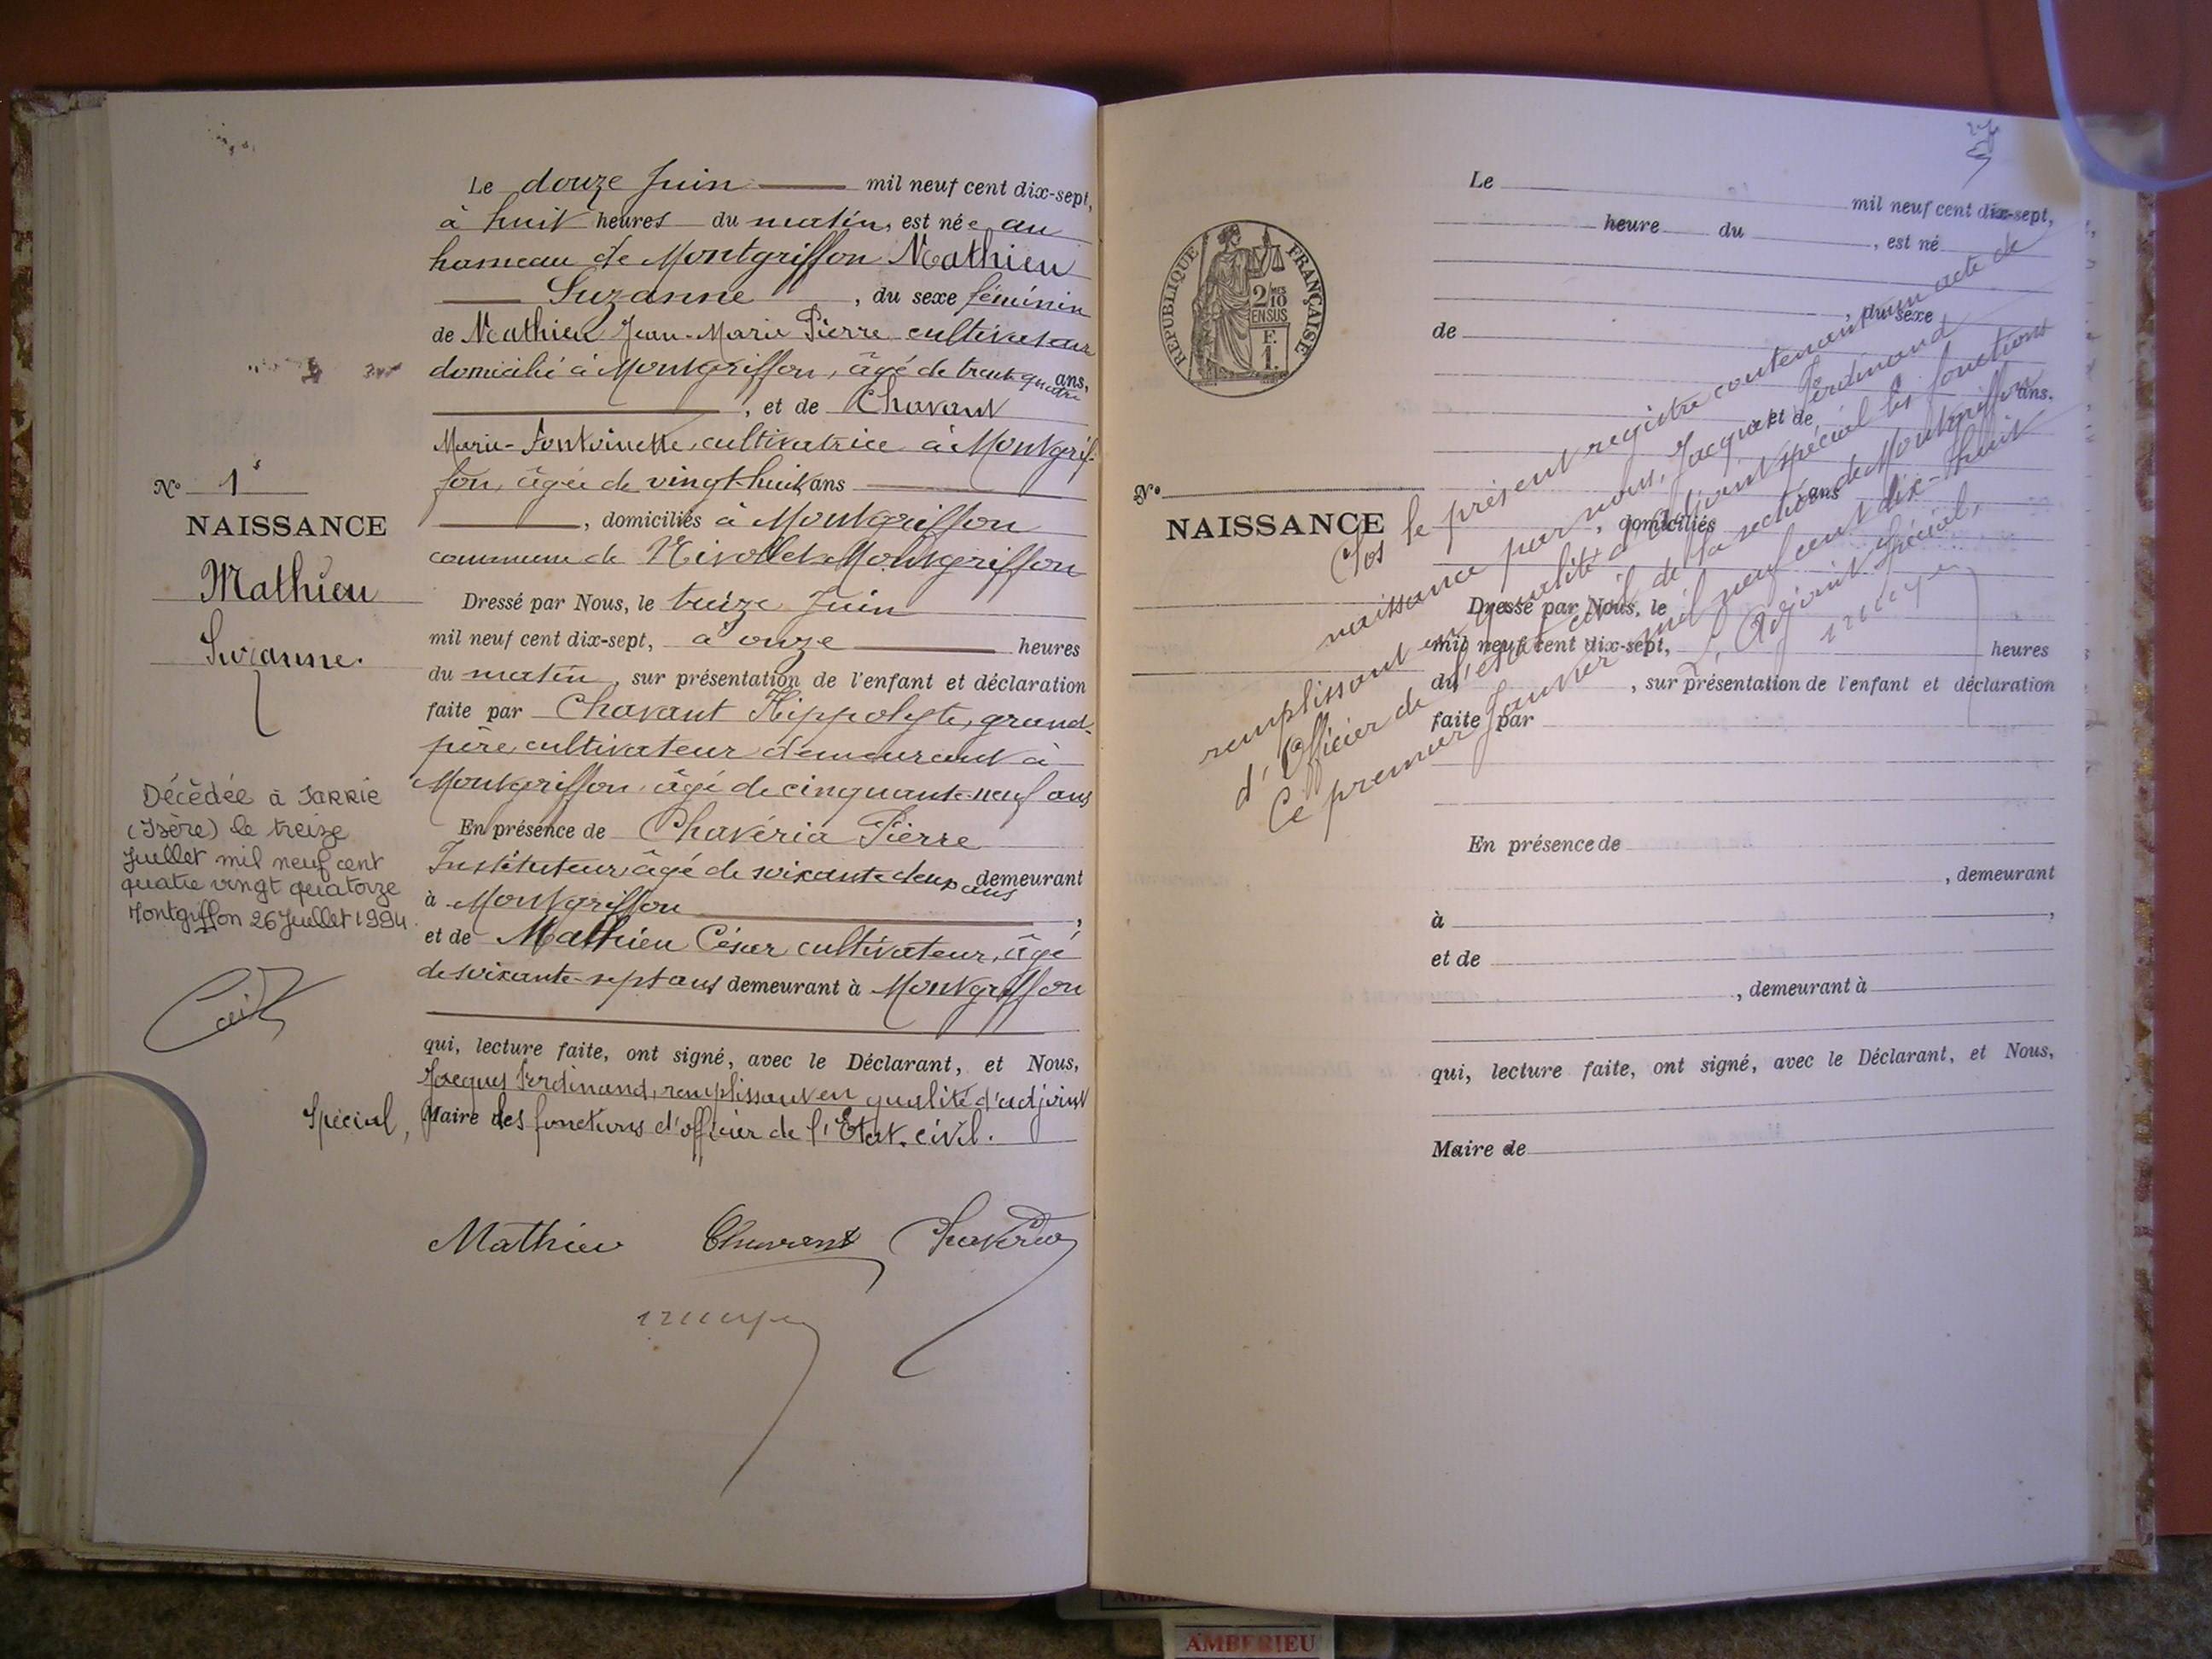 Le douze Juin mil neuf cent dix-sept,
à huit heures du matin, est née au
hameau de Montgriffon Mathieu
Suzanne, du sexe féminin
de Mathieu Jean-Marie Pierre cultivateur
domicilié à Montgriffon, âgé de trente quatre ans,
, et de Chavant
Marie-Antoinette, cultivatrice à Montgrif-
fon, âgée de vingt-huit ans
, domiciliés à Montgriffon
commune de Nivollet-Montgriffon
Dressé par Nous, le treize Juin
mil neuf cent dix-sept, à onze heures
du matin, sur présentation de l'enfant et déclaration
faite par Chavant Hippolyte, grand-
père, cultivateur demeurant à
Montgriffon, âgé de cinquante-neuf ans
En présence de Chavéria Pierre
Instituteur, âgé de soixante deux ans demeurant
à Montgriffon,
et de Mathieu César cultivateur, âgé
de soixante-sept ans demeurant à Montgriffon
qui, lecture faite, ont signé, avec le Déclarant, et Nous,
Jacquet Ferdinand, remplissant en qualité d'adjoint
Spécial, Maire des fonctions d'officier de l'Etat-civil.
Mathieu Chavant Chaveria
N° 1
NAISSANCE
Mathieu
Suzanne.
Décédée à JARRIE
(Isère) le treize
Juillet mil neuf cent
quatre vingt quatorze
Montgriffon 26 Juillet 1994.
RÉPUBLIQUE FRANÇAISE
2/10 MES
EN SUS
F.
1.
N°
NAISSANCE
Le mil neuf cent dix-sept,
heure du , est né
, du sexe
de
ans,
, et de
ans
, domiciliés
Dressé par Nous, le
mil neuf cent dix-sept, heures
du , sur présentation de l'enfant et déclaration
faite par
En présence de
, demeurant
à ,
et de
, demeurant à
qui, lecture faite, ont signé, avec le Déclarant, et Nous,
Maire de
Clos le présent registre contenant un acte de
naissance par nous, Jacquet Ferdinand
remplissant en qualité d'adjoint spécial les fonctions
d'Officier de l'état civil de la section de Montgriffon
Ce premier Janvier mil neuf cent dix-huit
L'Adjoint spécial,
AMBERIEU